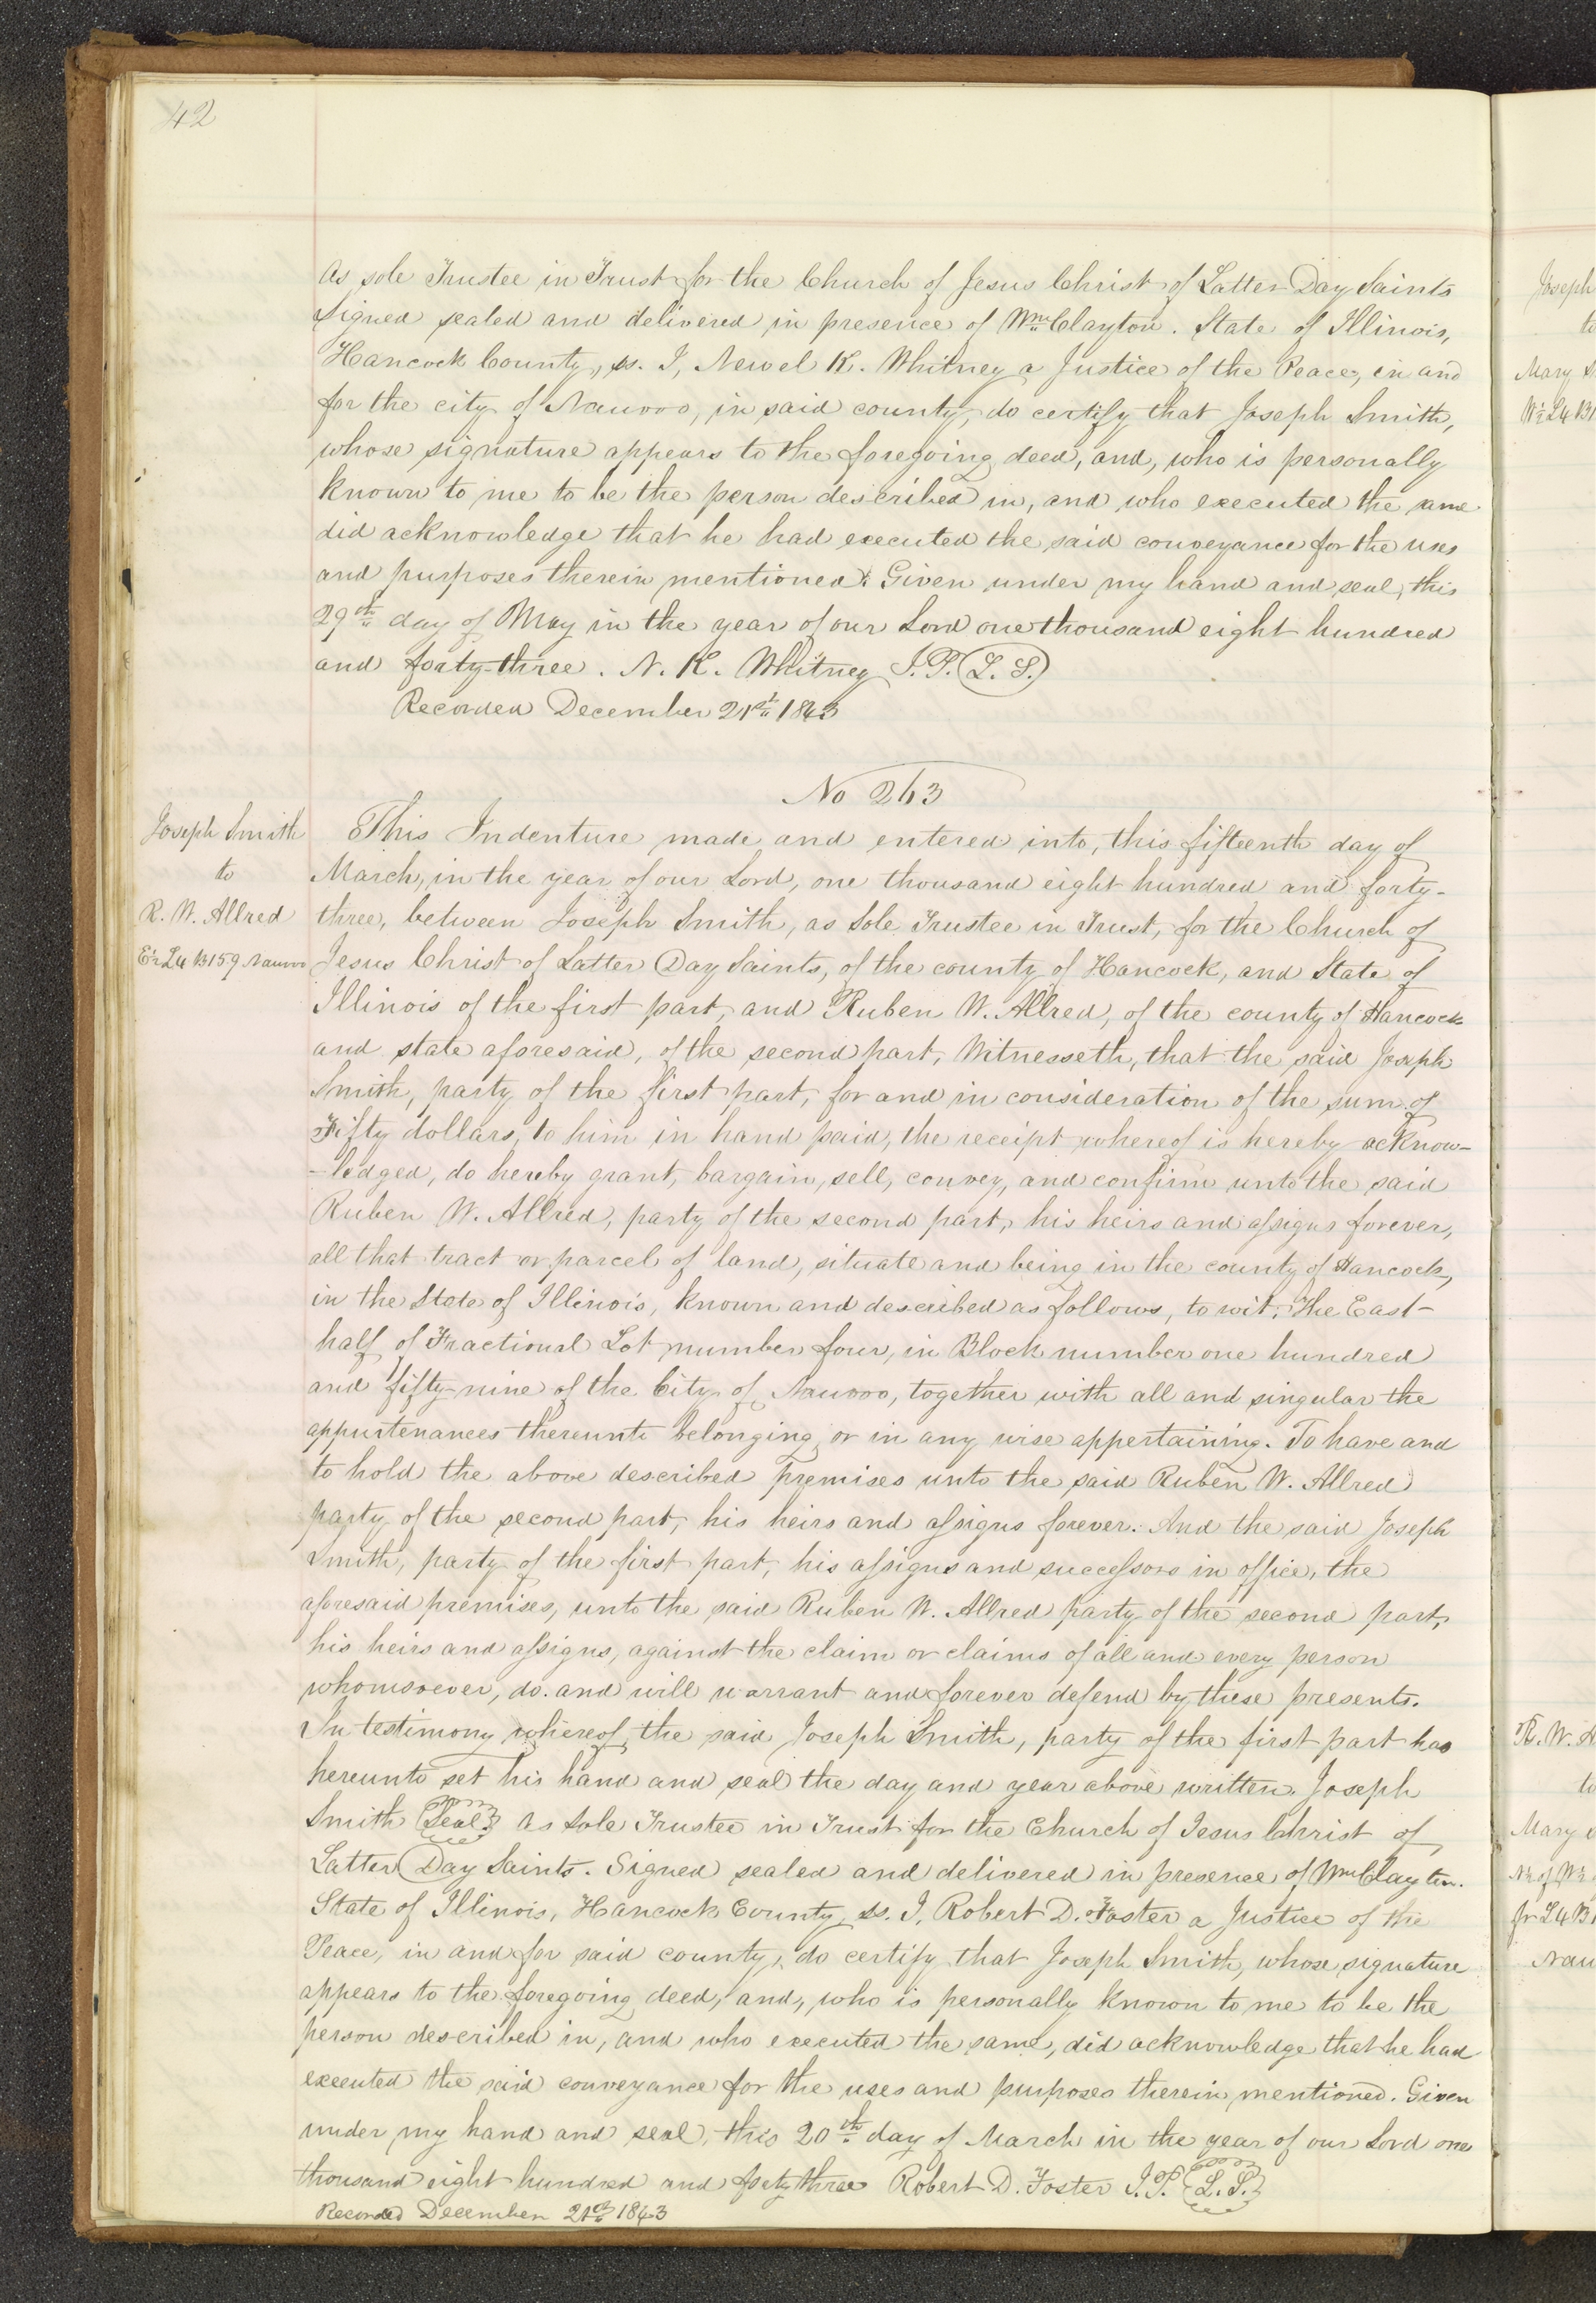 42
As sole Trustee in Trust for the Church of Jesus Christ of Latter Day Saints
Signed sealed and delivered in presence of Wm Clayton. State of Illinois,
Hancock County, ss. I, Newel K. Whitney a Justice of the Peace, in and
for the city of Nauvoo, in said county, do certify that Joseph Smith,
whose signature appears to the foregoing deed, and, who is personally
known to me to be the person described in, and who executed the same
did acknowledge that he had executed the said conveyance for the uses
and purposes therein mentioned. Given under my hand and seal, this
29th day of May in the year of our Lord one thousand eight hundred
and forty-three. N. K. Whitney J.P. (L. S.)
Recorded December 21st 1843
No 263
Joseph Smith
to
R. W. Allred
E½ L4 B159 Nauvoo
This Indenture made and entered into, this fifteenth day of
March, in the year of our Lord, one thousand eight hundred and forty-
three, between Joseph Smith, as Sole Trustee in Trust, for the Church of
Jesus Christ of Latter Day Saints, of the county of Hancock, and State of
Illinois of the first part, and Ruben W. Allred, of the county of Hancock
and state aforesaid, of the second part, Witnesseth, that the said Joseph
Smith, party of the first part, for and in consideration of the sum of
Fifty dollars, to him in hand paid, the receipt whereof is hereby acknow-
-ledged, do hereby grant, bargain, sell, convey, and confirm unto the said
Ruben W. Allred, party of the second part, his heirs and assigns forever,
all that tract or parcel of land, situate and being in the county of Hancock,
in the State of Illinois, known and described as follows, to wit; The East-
half of Fractional Lot number four, in Block number one hundred
and fifty-nine of the City of Nauvoo, together with all and singular the
appurtenances thereunto belonging or in any wise appertaining. To have and
to hold the above described premises unto the said Ruben W. Allred
party of the second part, his heirs and assigns forever. And the said Joseph
Smith, party of the first part, his assigns and successors in office, the
aforesaid premises, unto the said Ruben W. Allred party of the second part,
his heirs and assigns, against the claim or claims of all and every person
whomsoever, do. and will warrant and forever defend by these presents.
In testimony whereof, the said Joseph Smith, party of the first part has
hereunto set his hand and seal the day and year above written. Joseph
Smith (Seal) As Sole Trustee in Trust for the Church of Jesus Christ of
Latter Day Saints. Signed sealed and delivered in presence of Wm Clayton.
State of Illinois, Hancock County, ss. I, Robert D. Foster a Justice of the
Peace, in and for said county, do certify that Joseph Smith, whose signature
appears to the foregoing deed, and, who is personally known to me to be the
person described in, and who executed the same, did acknowledge that he had
executed the said conveyance for the uses and purposes therein mentioned. Given
under my hand and seal, this 20th day of March in the year of our Lord one
thousand eight hundred and forty three Robert D. Foster J.P. (L. S.)
Recorded December 21st 1843
Joseph
to
Mary
W½ L4 B1
R. W. A
to
Mary
N½ of W½
fr L4 B1
Nau